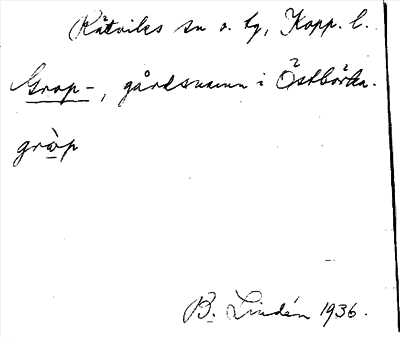 Rättviks sn o. tg, Kopp. l.
Grop-, gårdsnamn i Östbjörka.
gròp
B. Lindén 1936.